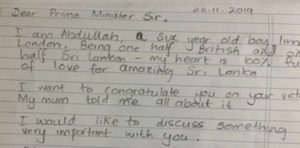 26.11.2019
Dear Prime Minister Sir.
I am Abdullah, a six year old boy living
London. Being one half British and
half Sri Lankan - my heart is 100%
of love for amazing Sri Lanka
I want to congratulate you on your
My mum told me all about it
I would like to discuss something
very important with you.